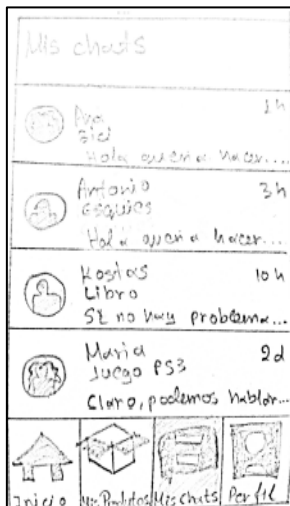 Mis chats
Ana 1h
Bici
Hola quería hacer....
Antonio 3h
Esquies
Hola quería hacer...
Kostas 10h
Libro
SE no hay problema...
Maria 2d
Juego PS3
Claro, podemos hablar...
Inicio Mis Produtos Mis Chats Perfil